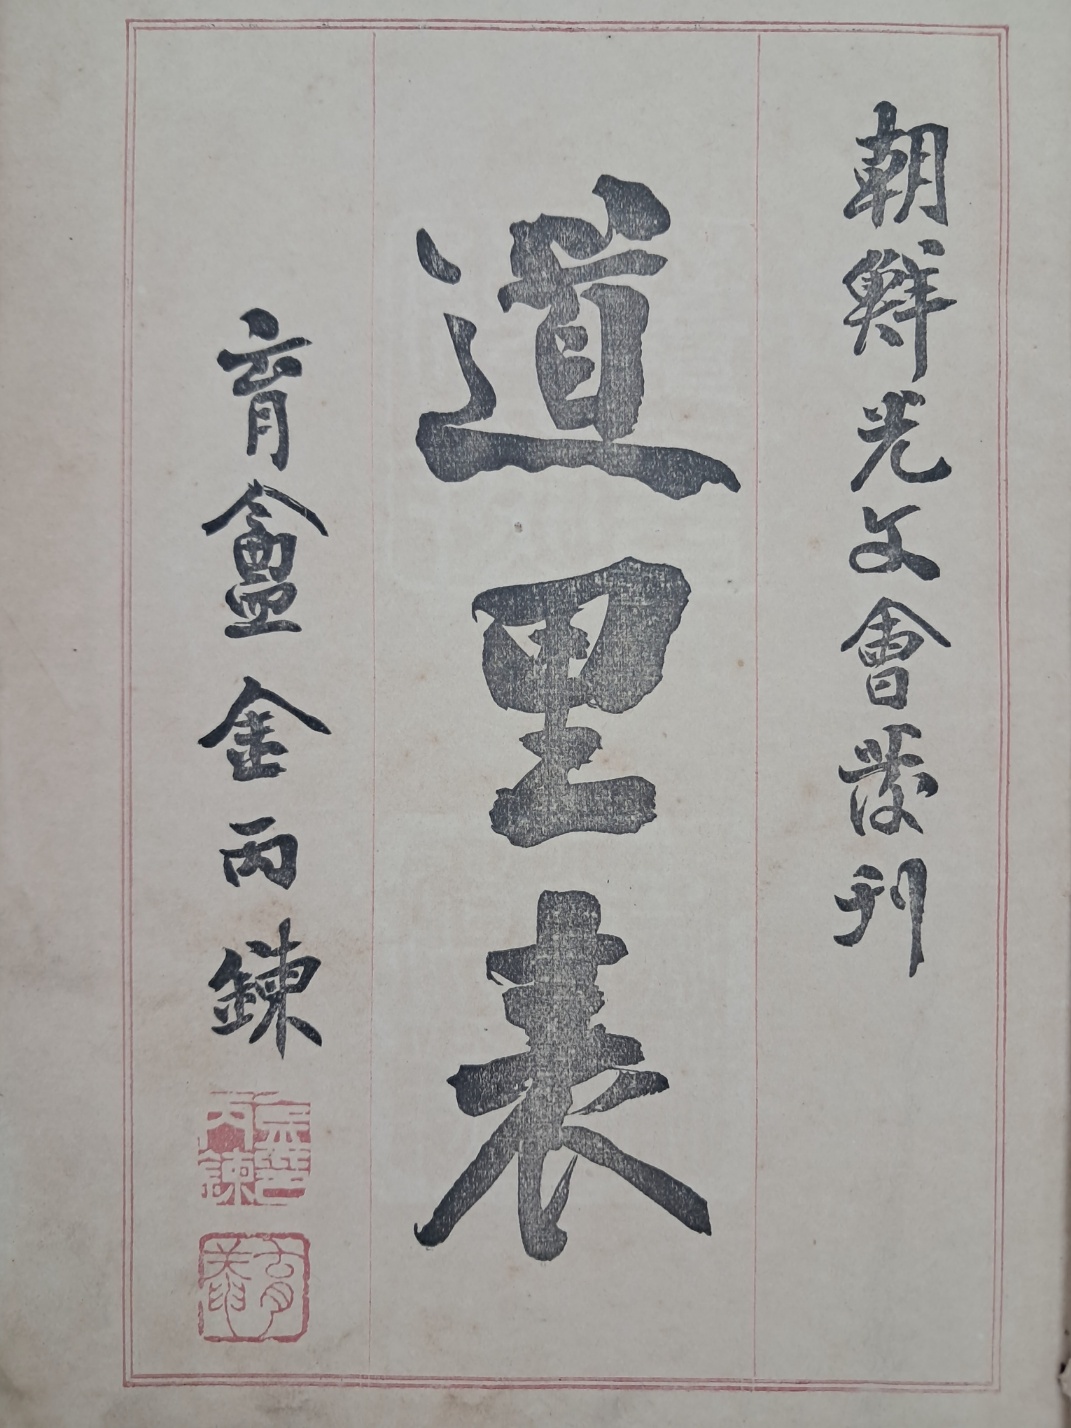 朝鮮光文會發刊
道里表
育盦金丙鍊